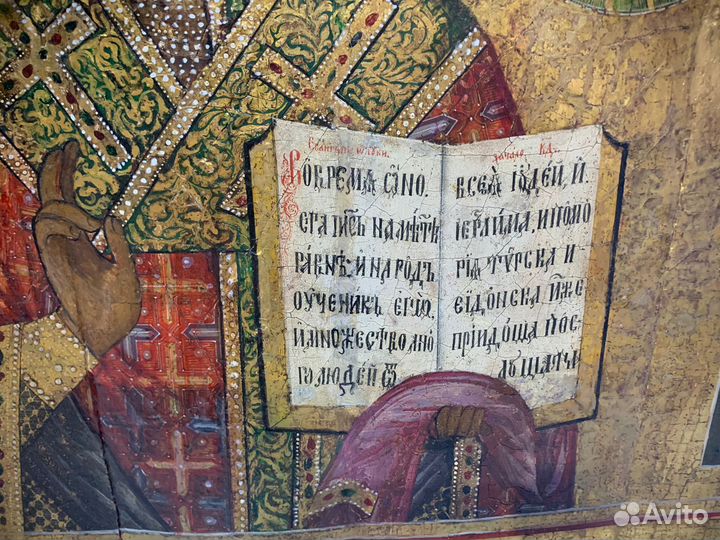 Евангелие ѿ Луки.
Во времѧ ѻ҆но.
ста і҆и҃съ на мѣстѣ
равнѣ, и҆ народъ
оученикъ є҆гѡ̀
и҆ множество мно
го людей ѿ
зачало. к҃д.
всеѧ̀ і҆ꙋдей, и҆
і҆ерⷭ҇лима, и помо
рїѧ тѵрска и
сїдонска и҆же
прїидоша пос
лꙋшати
Avito